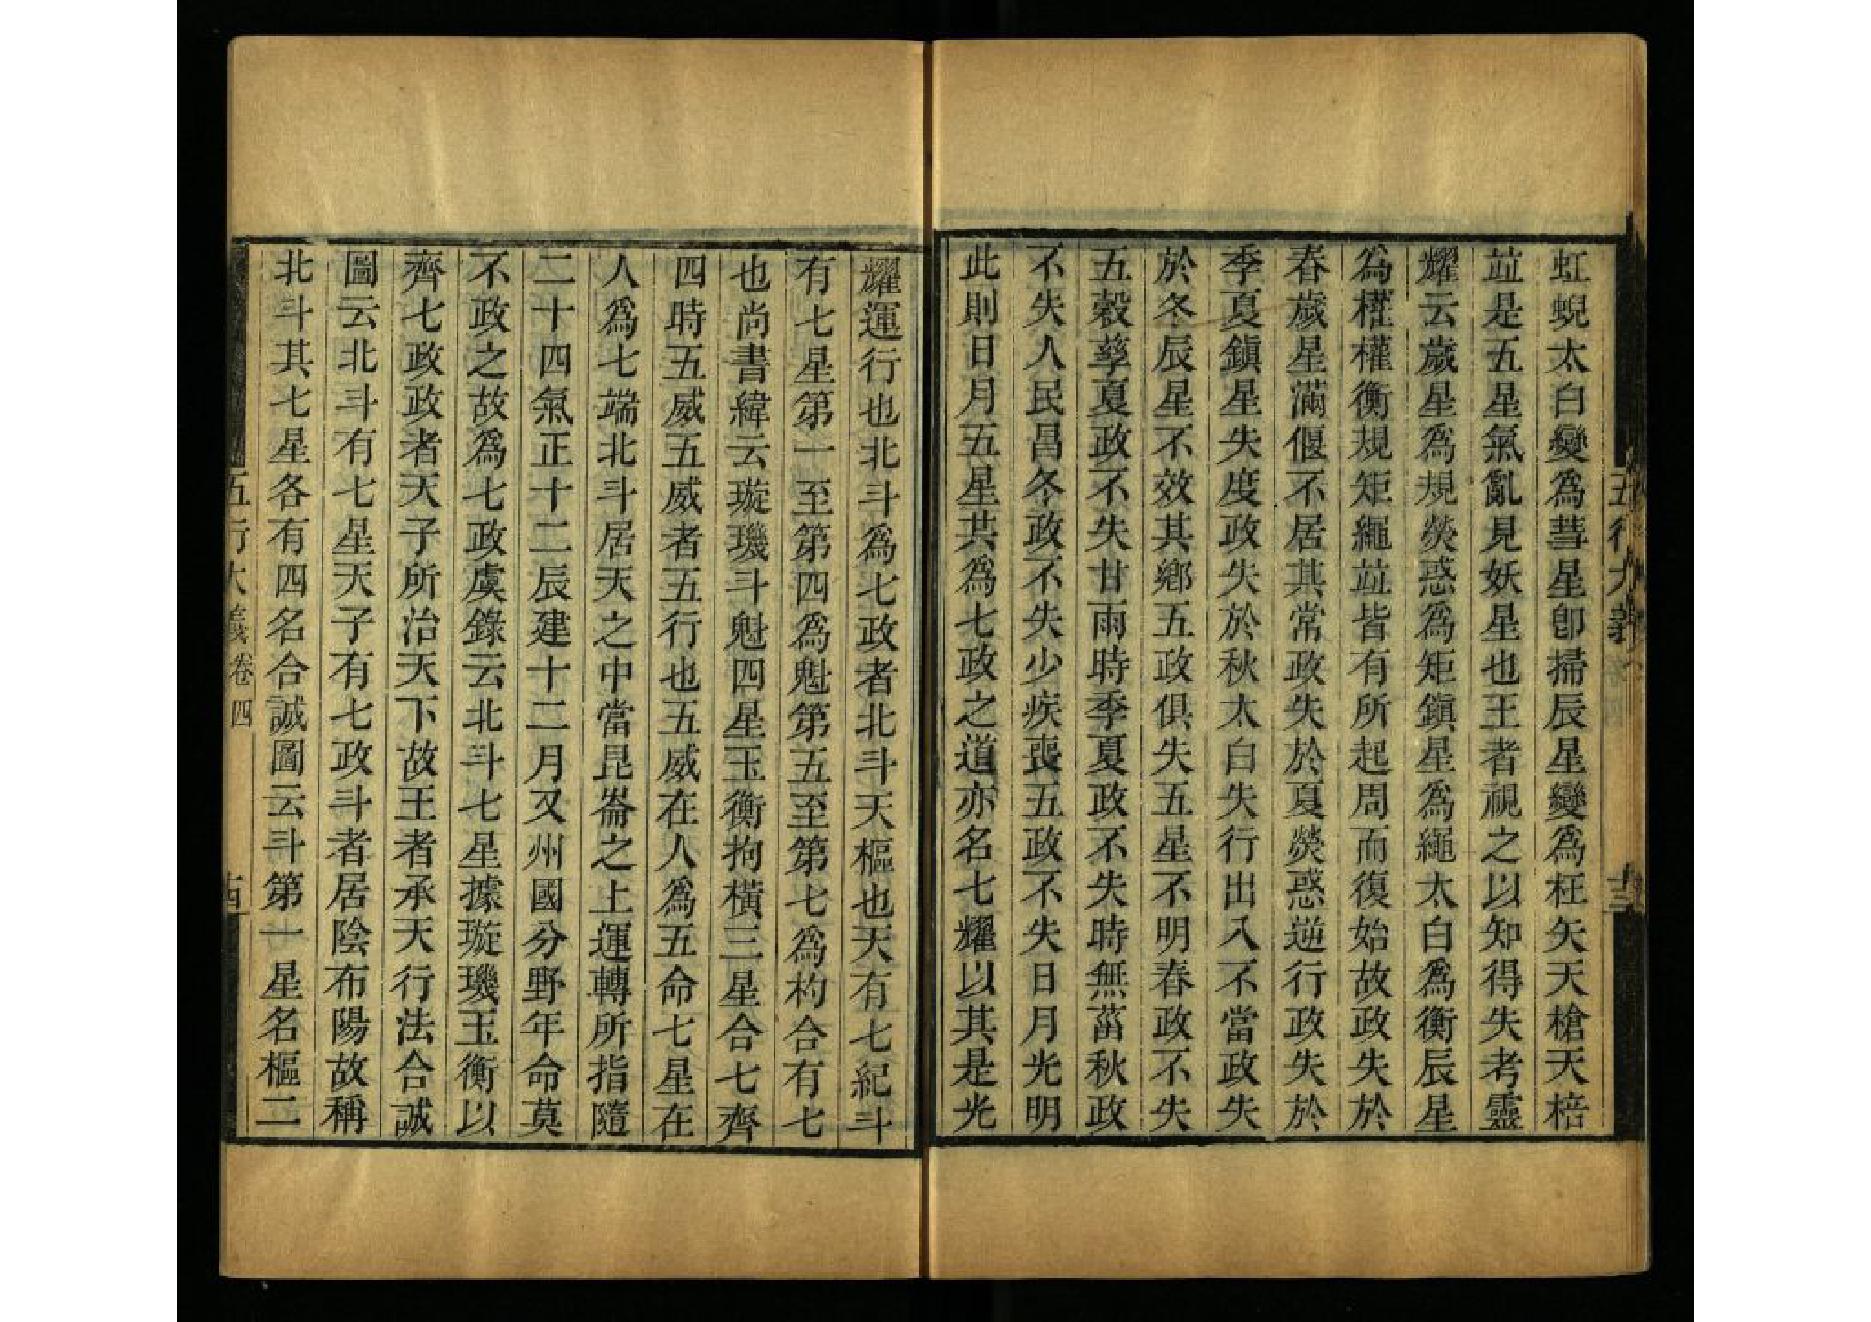 虹蜺太白變爲彗星卽掃辰星變爲枉矢天槍天棓
竝是五星氣亂見妖星也王者視之以知得失考靈
耀云歲星爲規熒惑爲矩鎭星爲繩太白爲衡辰星
爲權權衡規矩繩竝皆有所起周而復始故政失於
春歲星滿偃不居其常政失於夏熒惑逆行政失於
季夏鎭星失度政失於秋太白失行出入不當政失
於冬辰星不效其鄉五政俱失五星不明春政不失
五穀孳夏政不失甘雨時季夏政不失時無菑秋政
不失人民昌冬政不失少疾喪五政不失日月光明
此則日月五星共爲七政之道亦名七耀以其是光
五行大義
十三
耀運行也北斗爲七政者北斗天樞也天有七紀斗
有七星第一至第四爲魁第五至第七爲杓合有七
也尚書緯云璇璣斗魁四星玉衡拘橫三星合七齊
四時五威五威者五行也五威在人爲五命七星在
人爲七端北斗居天之中當昆崙之上運轉所指隨
二十四氣正十二辰建十二月又州國分野年命莫
不政之故爲七政虞錄云北斗七星據璇璣玉衡以
齊七政政者天子所治天下故王者承天行法合誠
圖云北斗有七星天子有七政斗者居陰布陽故稱
北斗其七星各有四名合誠圖云斗第一星名樞二
五行大義卷四
十四